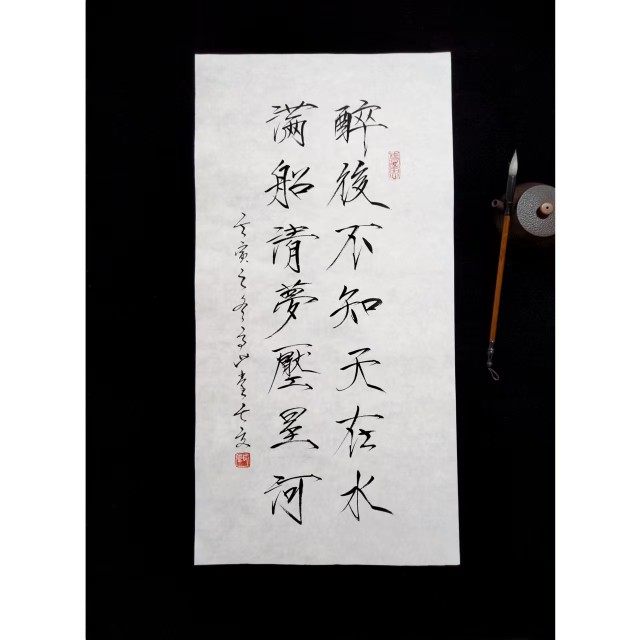 醉後不知天在水
滿船清夢壓星河
壬寅之冬